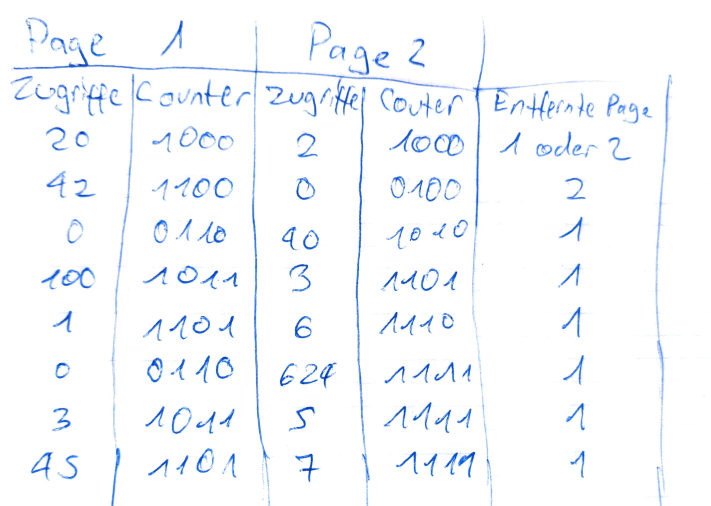 Page 1 Page 2
Zugriffe Counter Zugriffe Couter Entfernte Page
20 1000 2 1000 1 oder 2
42 1100 0 0100 2
0 0110 40 1010 1
100 1011 3 1101 1
1 1101 6 1110 1
0 0110 624 1111 1
3 1011 5 1111 1
45 1101 7 1111 1